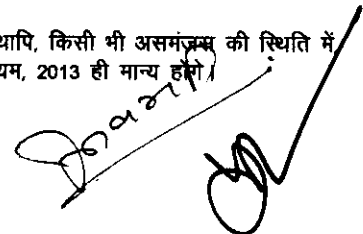 थापि, किसी भी असमंजस की स्थिति में,
यम, 2013 ही मान्य होंगे।